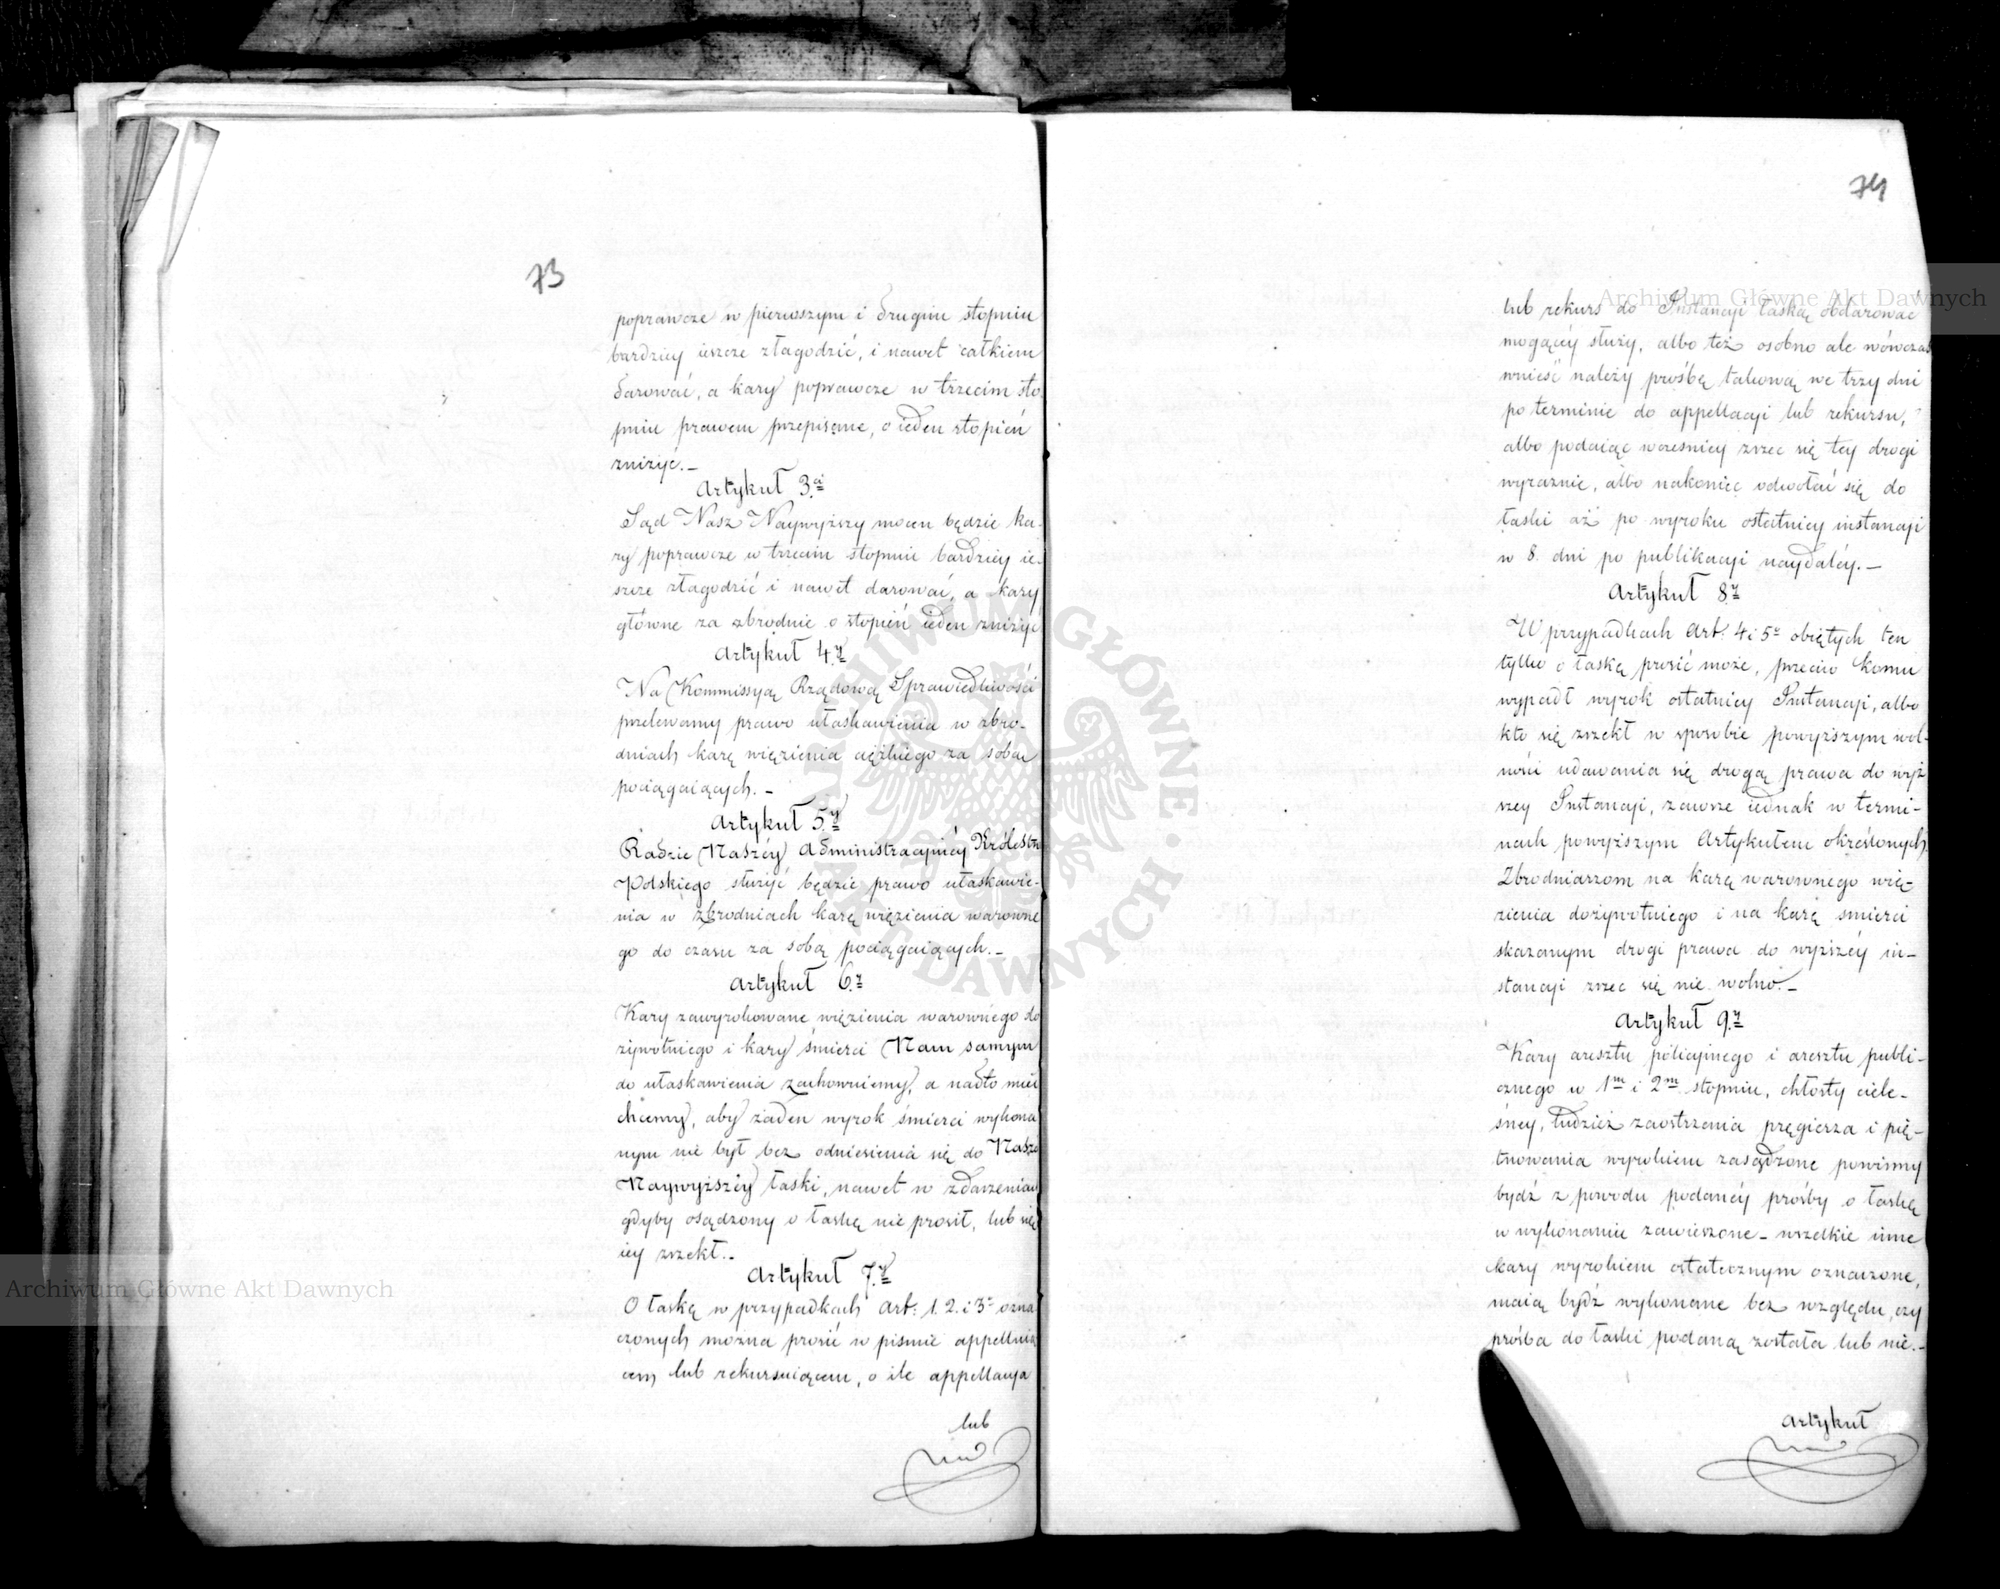 73
poprawcze w pierwszym i drugim stopniu
bardziey ieszcze złagodzić, i nawet całkiem
darować, a kary poprawcze w trzecim sto-
pniu prawem przepisane, o ieden stopień
zniżyć.-
Artykuł 3ci
Sąd Nasz Naywyższy mocen będzie ka-
ry poprawcze w trzecim stopniu bardziey ie-
szcze złagodzić i nawet darować, a kary
główne za zbrodnie o stopień ieden zniżyć
Artykuł 4.y
Na Kommissyą Rządową Sprawiedliwości
przelewamy prawo ułaskawienia w zbro-
dniach karę więzienia ciężkiego za sobą
pociągaiących.-
Artykuł 5.y
Radzie Naszéy Administracyjnéy Królestw
Polskiego służyć będzie prawo ułaskawie-
nia w zbrodniach karę więzienia warowne
go do czasu za sobą pociągaiących.-
Artykuł 6.y
Kary zawyrokowane więzienia warownego do
żywotniego i kary śmierci Nam samym
do ułaskawienia zachowuiemy, a nadto mieć
chcemy, aby żaden wyrok śmierci wykona
nym nie był bez odniesienia się do Nasze
Naywyższéy łaski, nawet w zdarzeniach
gdyby osądzony o łaskę nie prosił, lub się
iey zrzekł.-
Artykuł 7.y
O łaskę w przypadkach Art: 1. 2. i 3o ozna
czonych można prosić w piśmie appelluią
cem lub rekursuiącem, o ile appellacya
lub
74
lub rekurs do Instancyi łaską obdarować
mogącéy służy, albo też osobno ale wówczas
wnieść należy prośbę takową we trzy dni
po terminie do appellacyi lub rekursu,
albo podaiąc wcześniey zrzec się tey drogi
wyraźnie, albo nakoniec odwołać się do
łaski aż po wyroku ostatniey instancyi
w 8. dni po publikacyi naydaléy.-
Artykuł 8.y
W przypadkach Art. 4 i 5o obiętych ten
tylko o łaskę prosić może, przeciw komu
wypadł wyrok ostatniey Instancyi, albo
kto się zrzekł w sposobie powyższym wol-
ności udawania się drogą prawa do wyż
szey Instancyi, zawsze iednak w termi-
nach powyższym Artykułem określonych.
Zbrodniarzom na karę warownego wię-
zienia dożywotniego i na karę śmierci
skazanym drogi prawa do wyższéy in-
stancyi zrzec się nie wolno.-
Artykuł 9.y
Kary aresztu policyjnego i aresztu publi-
cznego w 1m i 2m stopniu, chłosty ciele-
śney, tudzież zaostrzenia pręgierza i pię-
tnowania wyrokiem zasądzone powinny
bydź z powodu podanéy prośby o łaskę
w wykonanie zawieszone - wszelkie inne
kary wyrokiem ostatecznym oznaczone,
maią bydź wykonane bez względu, czy
prośba do łaski podaną została lub nie.-
Artykuł
Archiwum Główne Akt Dawnych
Archiwum Główne Akt Dawnych
ARCHIWUM GŁÓWNE AKT DAWNYCH